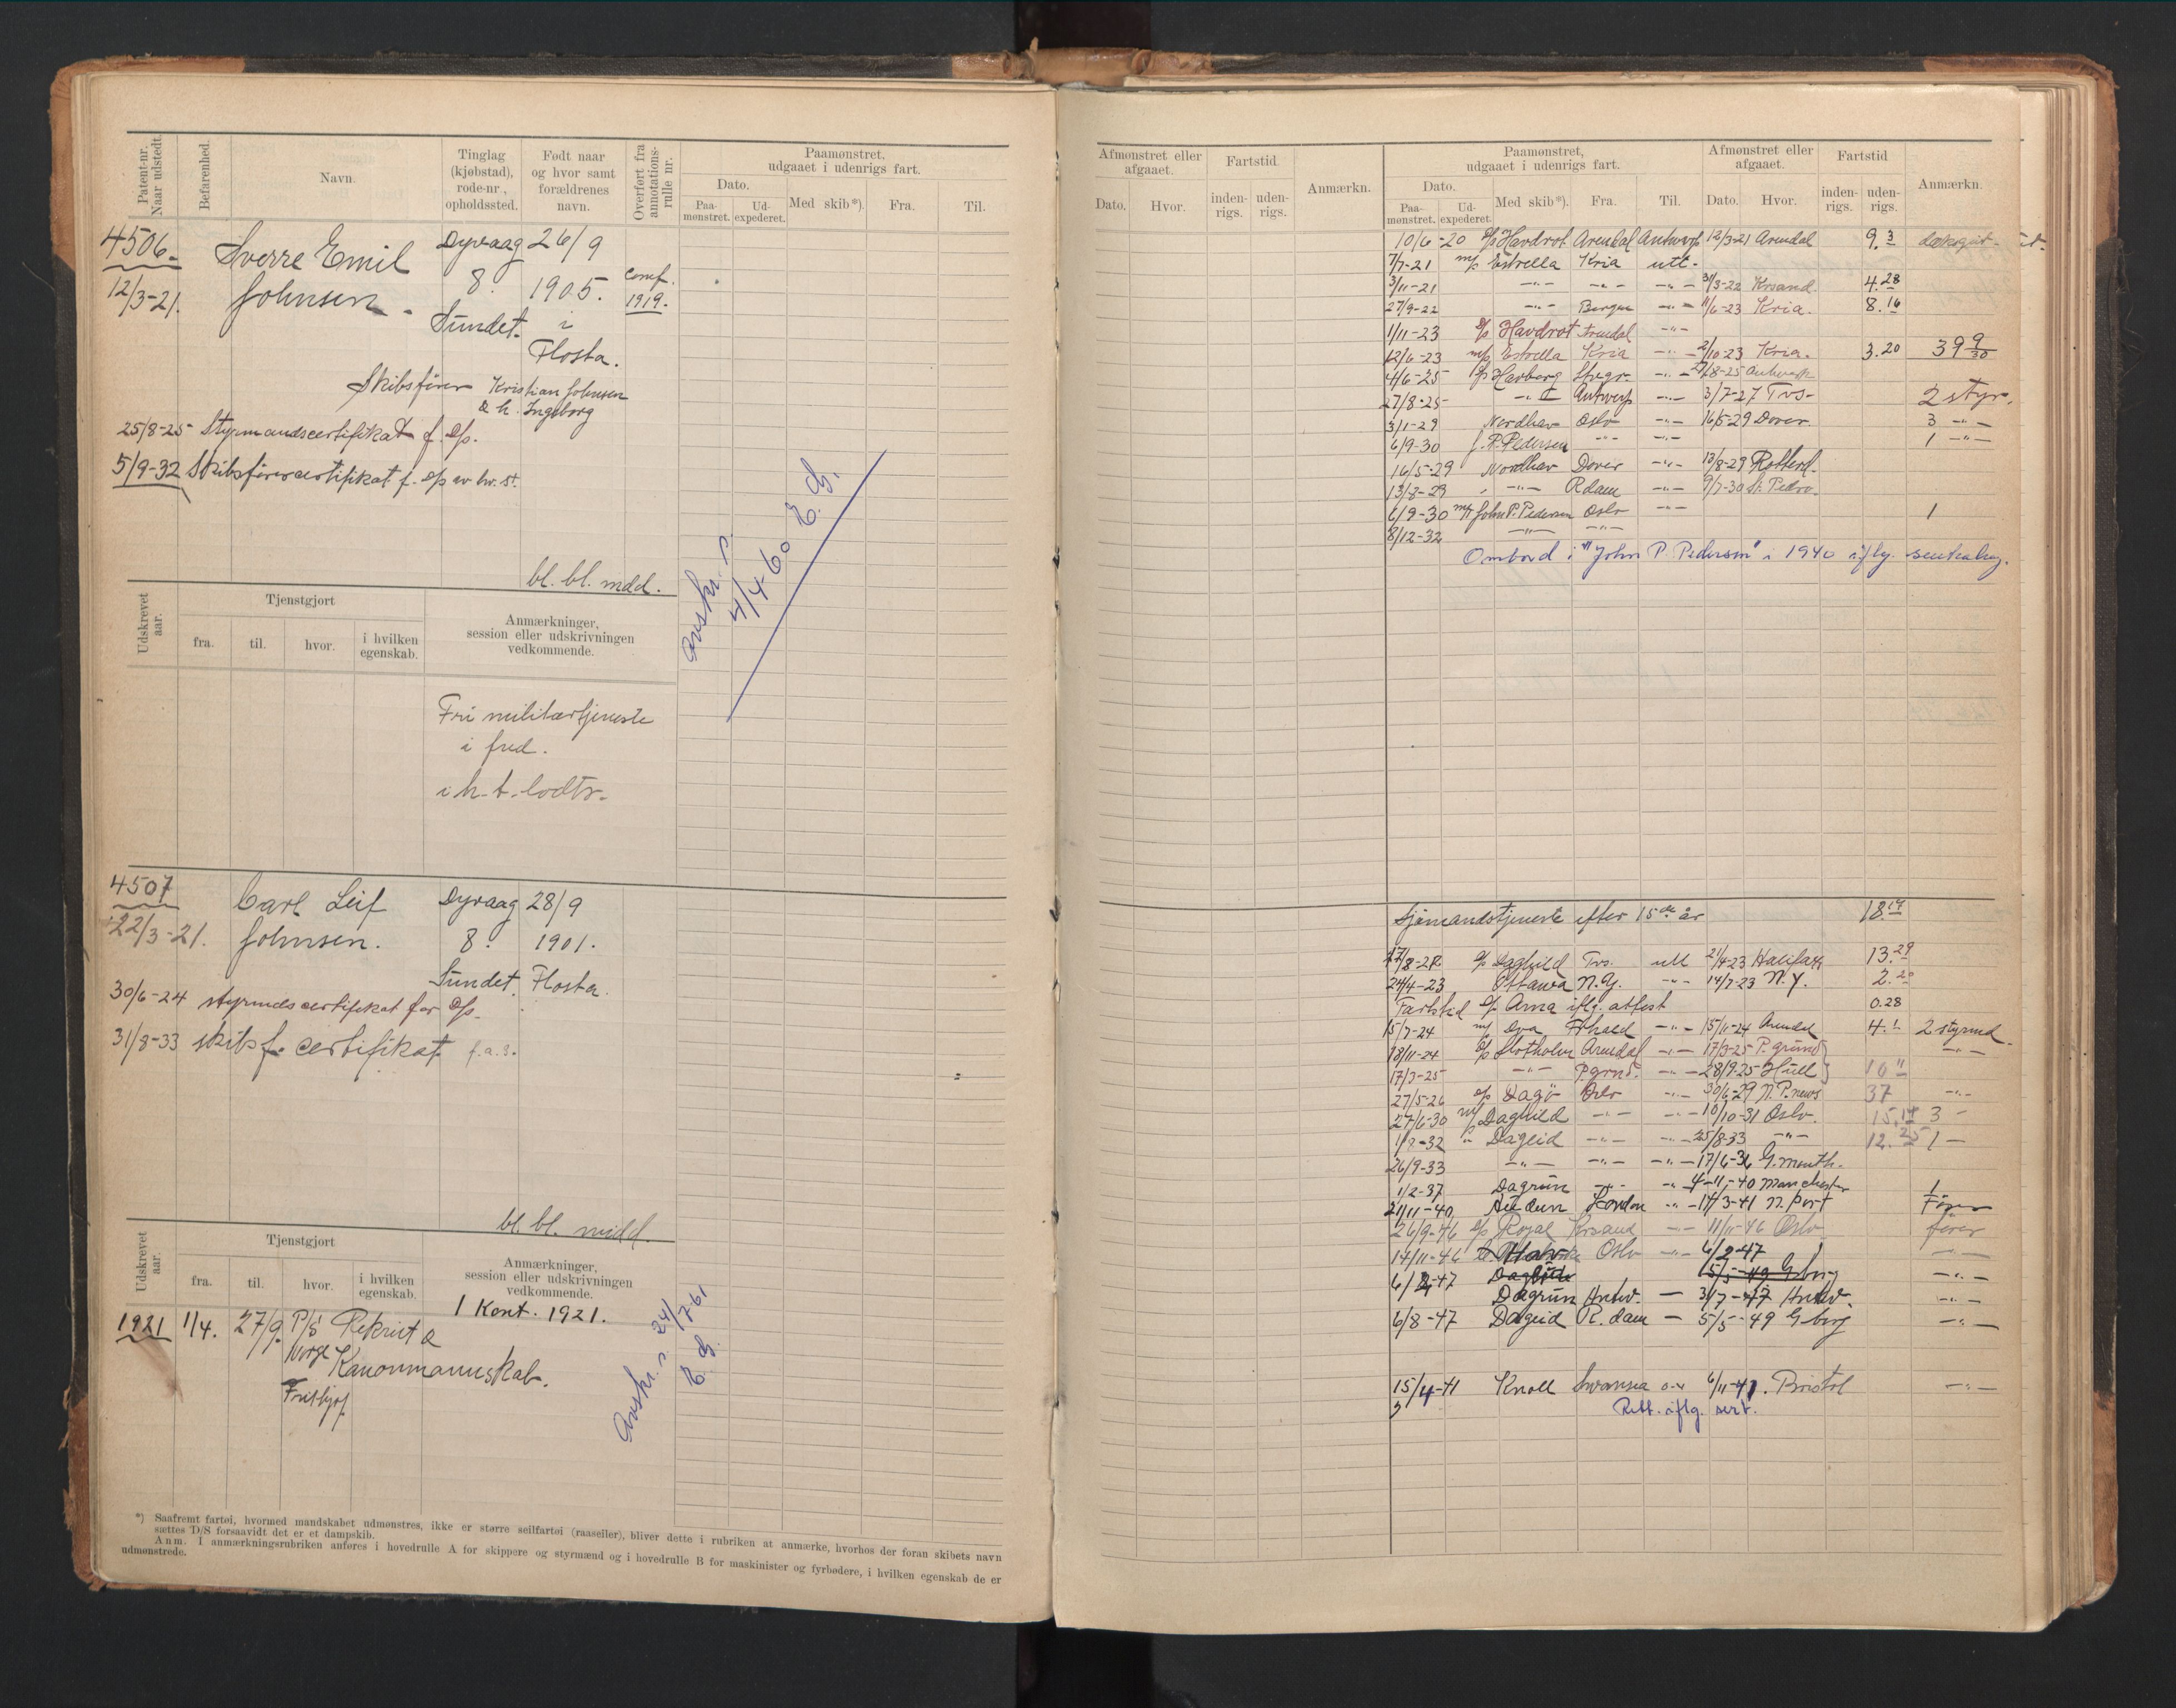 Patent-nr. Naar udstedt.
Befarenhed.
Navn.
Tinglag (kjøbstad), rode-nr., opholdssted.
Født naar og hvor samt forældrenes navn.
Overført fra annotations-rulle nr.
Paamønstret, udgaaet i udenrigs fart.
Dato.
Paa-mønstret.
Ud-expederet.
Med skib*).
Fra.
Til.
4506
12/3-21.
Sverre Emil
Johnsen
Dyvaag
8.
Sundet.
26/9
1905.
i
Flosta.
conf.
1919.
Skibsfører Kristian Johnsen
& h. Ingeborg
25/8-25 Styrmandscertifikat f. D/s.
5/9-32 Skibsførercertifikat f. D/s
bl. bl. mdd.
avskr.
4/4-60
Udskrevet aar.
Tjenstgjort
fra.
til.
hvor.
i hvilken egenskab.
Anmærkninger, session eller udskrivningen vedkommende.
Fri militærtjeneste
i fred.
4507
22/3-21.
Carl Leif
Johnsen.
Dyvaag
8.
Sundet.
28/9
1901.
Flosta.
30/6-24 styrmdscertifikat for D/s.
31/8-33 skibsf. certifikat.
bl. bl. midd.
Udskrevet aar.
Tjenstgjort
fra.
til.
hvor.
i hvilken egenskab.
Anmærkninger, session eller udskrivningen vedkommende.
1 Kont. 1921.
1921 1/4. 27/9. P/s Norge Rekrut &
Kanonmannskab.
Fridtjof
avskr.
24/7-61
*) Saafremt fartøi, hvormed mandskabet udmønstres, ikke er større seilfartøi (raaseiler), bliver dette i rubriken at anmærke, hvorhos der foran skibets navn
sættes D/S forsaavidt det er et dampskib.
Anm. I anmærkningsrubriken anføres i hovedrulle A for skippere og styrmænd og i hovedrulle B for maskinister og fyrbødere, i hvilken egenskab de er
udmønstrede.
Afmønstret eller afgaaet.
Dato.
Hvor.
Fartstid
inden-rigs.
uden-rigs.
Anmærkn.
Paamønstret, udgaaet i udenrigs fart.
Dato.
Paa-mønstret.
Ud-expederet.
Med skib*).
Fra.
Til.
Afmønstret eller afgaaet.
Dato.
Hvor.
Fartstid
inden-rigs.
uden-rigs.
Anmærkn.
10/6-20 D/s Havdrot Arendal Antwerp 12/3-21 Arendal 9.3
7/7-21 m/s Estrella Kria utl.
3/11-21 -"- -"- -"- 31/3-22 Krsand. 4.28
27/9-22 -"- Bergen -"- 11/6-23 Kria. 8.16
1/11-23 D/s Havdrot Arendal -"-
12/6-23 m/s Estrella Kria -"- 2/10-23 Kria. 3.20 39 9/30
4/6-25 D/s Havborg -"- 27/8-25 Antwerp
27/8-25 -"- Antwerp -"- 3/7-27 Tvs. 2 styr.
3/1-29 Nordhav Oslo -"- 16/5-29 Dover 3 -"-
6/9-30 J. P. Pedersen -"- -"- 1 -"-
16/5-29 Nordhav Dover -"- 13/8-29 Rotterd.
13/8-29 -"- Rdam -"- 9/7-30 St. Pedro.
6/9-30 m/t John P. Pedersen Oslo -"- 1
8/12-32 -"- -"-
Ombord i "John P. Pedersen" i 1940 iflg.
Sjømandstjeneste efter 15de år 18.
17/8-22 D/s Daghild Tvs. utl 21/4-23 Halifax 13.29
24/4-23 Ottawa N.Y. -"- 14/7-23 N.Y. 2.20
Fartstid D/s Arna iflg. attest 0.28
15/7-24 m/s Dva Fhald -"- 15/11-24 Arendal 4.1 2 styrmd.
18/11-24 D/s Slotholm Arendal -"- 17/3-25 P.grund -"-
17/3-25 -"- P.grnd. -"- 28/9-25 Hull 10
27/5-26 D/s Dagö Oslo -"- 30/6-29 N.P.news 37 -"-
27/6-30 m/s Daghild -"- -"- 10/10-31 Oslo. 15.14 3 -
1/8-32 Dageid -"- -"- 25/8-33 -"- 12.25 1 -
26/9-33 -"- -"- -"- 17/6-36 G.mouth.
1/2-37 Dagrun -"- -"- 4-11-40 Manchester 1
21/11-40 Audun London -"- 14/3-41 N. Port Fører
26/9-46 D/s Royal Krsand -"- 11/11-46 Oslo fører
14/11-46 Oslo -"- 6/2-47 -"-
6/2-47 5/5-49 Gborg -"-
Dagrun Antw. - 3/7-47 Antw. -"-
6/8-47 Dageid R.dam - 5/5-49 Gborg -"-
15/4-41 Knoll Swansea 6/11-41. Bristol -"-
Rett. iflg. sert.